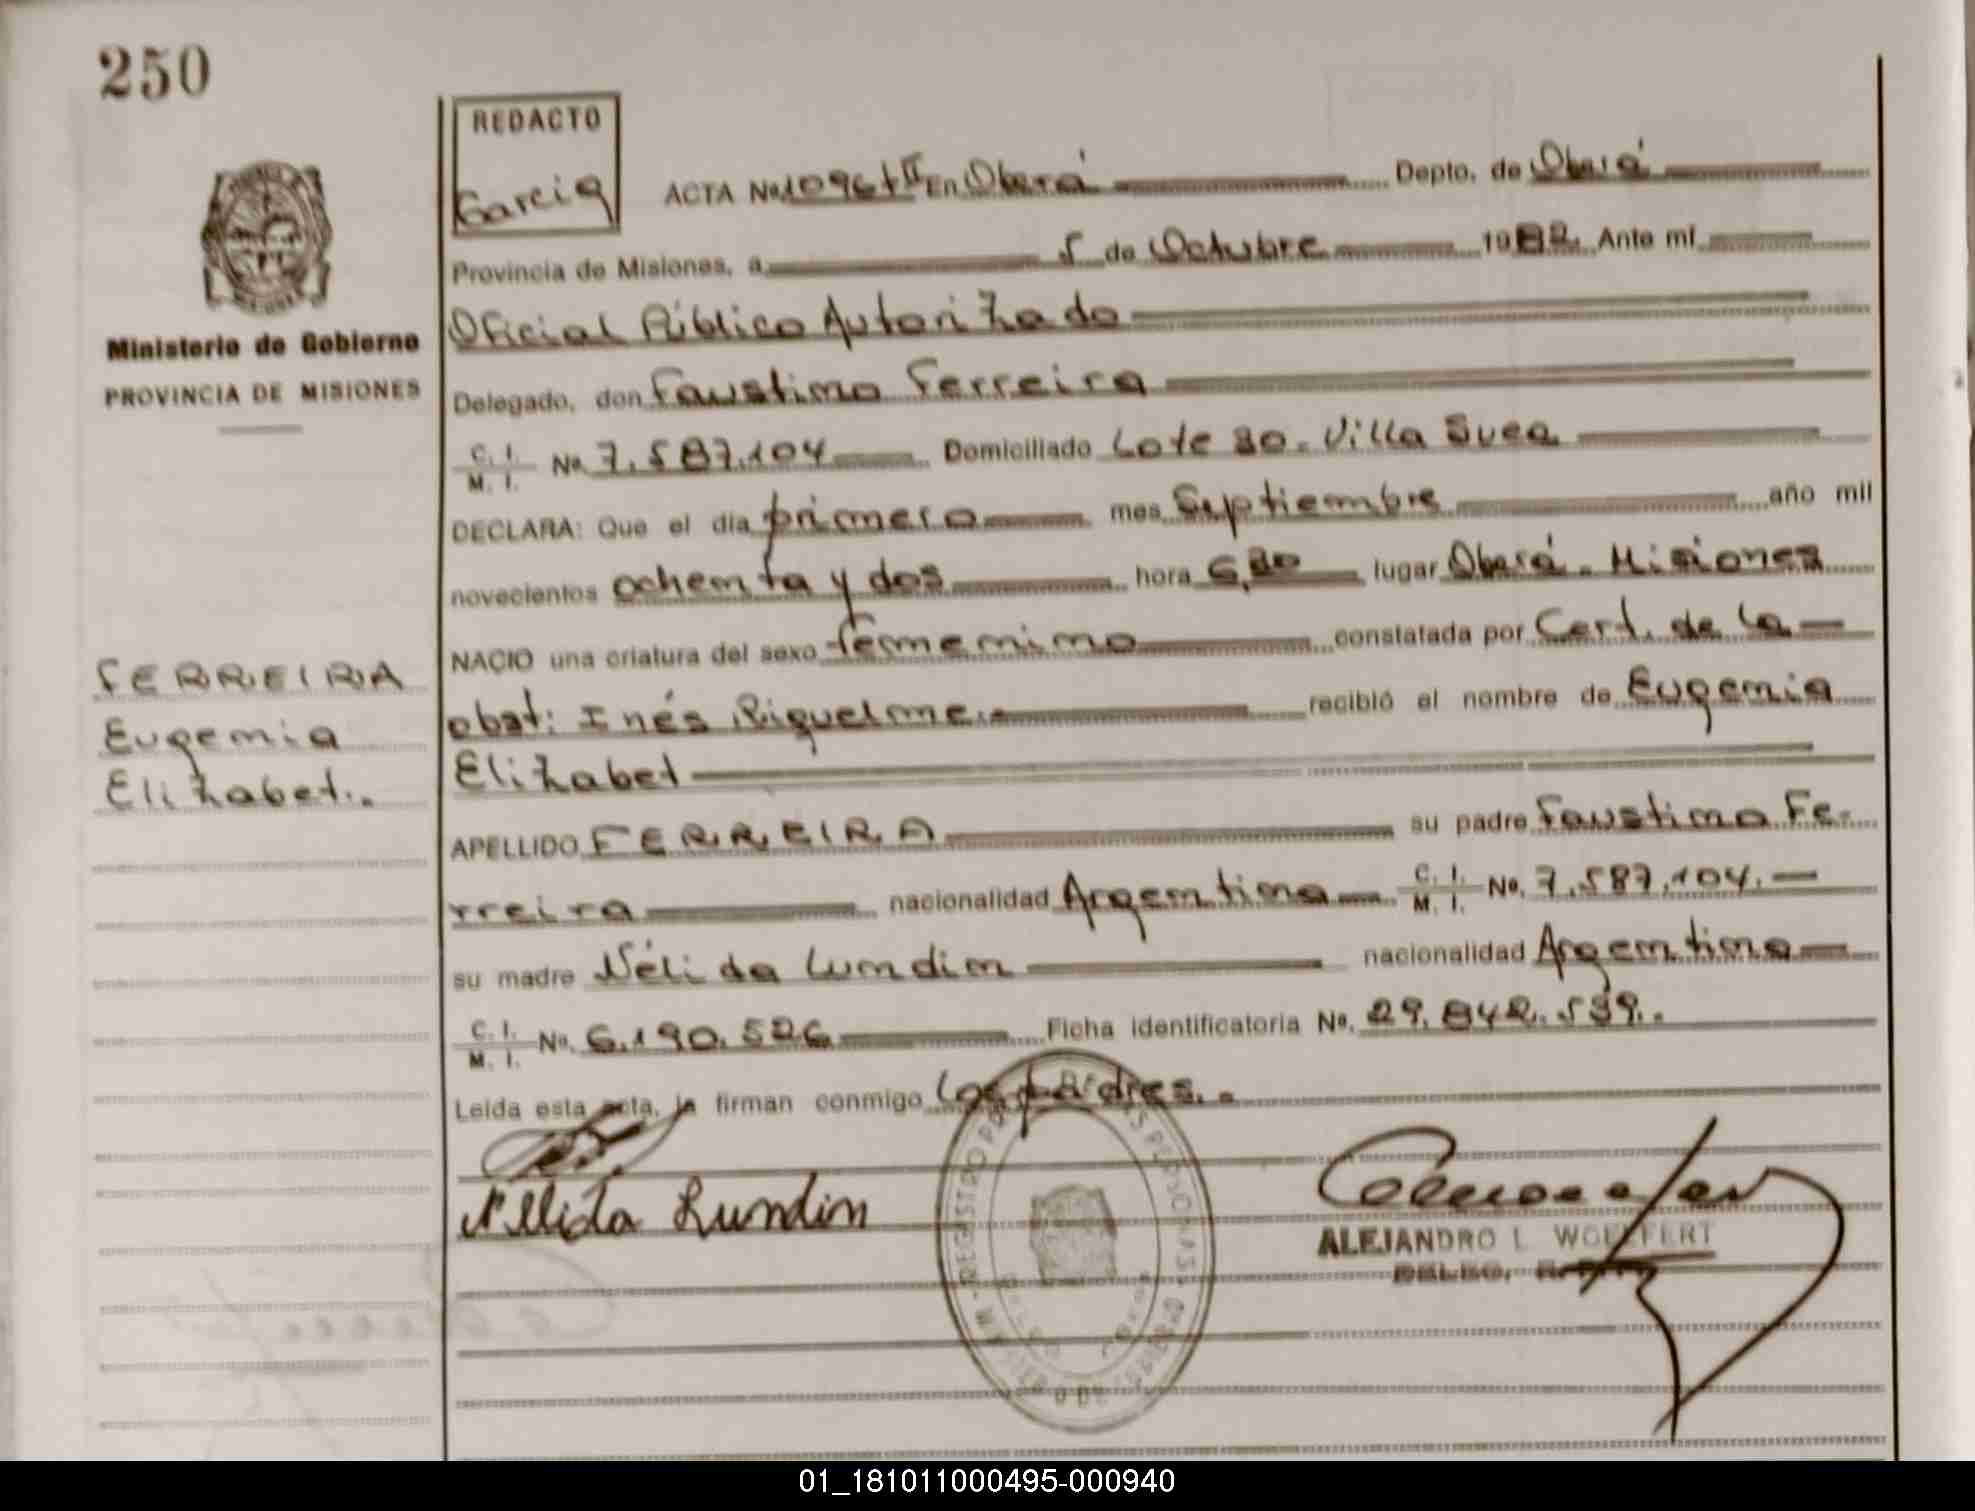 250
REDACTO
Garcia
ACTA Nº 1096 t II En Oberá Depto. de Oberá
Provincia de Misiones, a 5 de Octubre 1982. Ante mí
Oficial Público Autorizado
Delegado, don Faustino Ferreira
C. I.
M. I. Nº 7.587.104 Domiciliado Lote 30. Villa Svea
DECLARA: Que el día primero mes Septiembre año mil
novecientos ochenta y dos hora 6,30 lugar Oberá. Misiones
NACIO una criatura del sexo femenino constatada por Cert. de la
obst: Inés Riquelme.- recibió el nombre de Eugenia
Elizabet
APELLIDO FERREIRA su padre Faustino Fe-
rreira nacionalidad Argentina C. I.
M. I. Nº. 7.587.104.-
su madre Nélida Lundin nacionalidad Argentina
C. I.
M. I. Nº. 6.190.526 Ficha identificatoria Nº. 29.842.539..
Leída esta acta, la firman conmigo los padres..
Nelida Lundin
ALEJANDRO L. WOLFFERT
Ministerio de Gobierno
PROVINCIA DE MISIONES
FERREIRA
Eugenia
Elizabet..
01_181011000495-000940